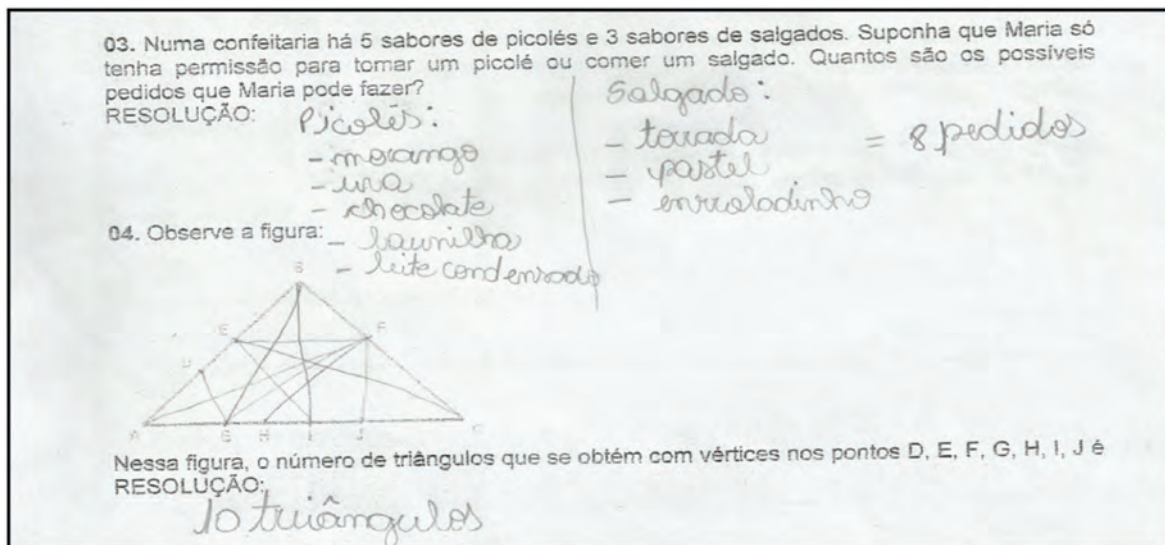 03. Numa confeitaria há 5 sabores de picolés e 3 sabores de salgados. Suponha que Maria só
tenha permissão para tomar um picolé ou comer um salgado. Quantos são os possíveis
pedidos que Maria pode fazer?
RESOLUÇÃO:
Picolés:
- morango
- uva
- chocolate
- baunilha
- leite condensado
Salgado:
- torrada
- pastel
- enroladinho
= 8 pedidos
04. Observe a figura:
B
E F
D
A G H I J C
Nessa figura, o número de triângulos que se obtém com vértices nos pontos D, E, F, G, H, I, J é
RESOLUÇÃO:
10 triângulos